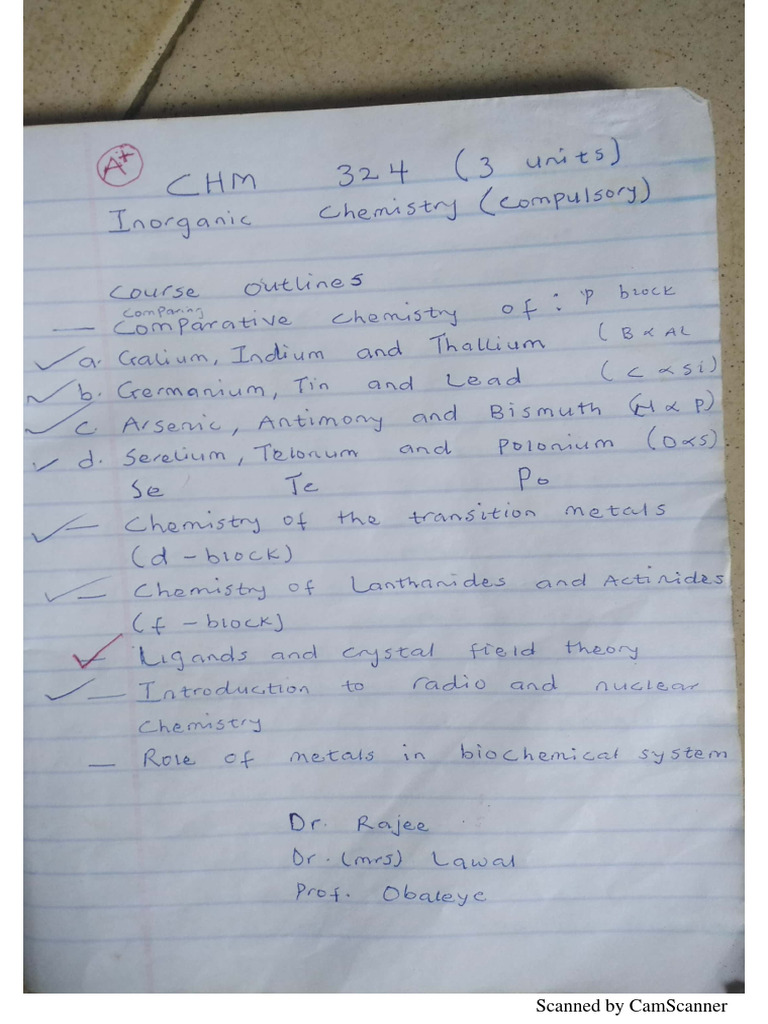 A+
CHM 324 (3 units)
Inorganic Chemistry (compulsory)
Course outlines
comparing
— Comparative chemistry of: p block
a. Galium, Indium and Thallium (B & AL
b. Germanium, Tin and Lead (C & Si)
c. Arsenic, Antimony and Bismuth (N & P)
d. Serelium, Telonum and Polonium (O & S).
Se Te Po
— Chemistry of the transition metals
(d - block)
— Chemistry of Lanthanides and Actinides
(f - block)
— Ligands and crystal field theory
— Introduction to radio and nuclear
chemistry
— Role of metals in biochemical system
Dr. Rajee
Dr. (mrs) Lawal
Prof. Obaleye
Scanned by CamScanner